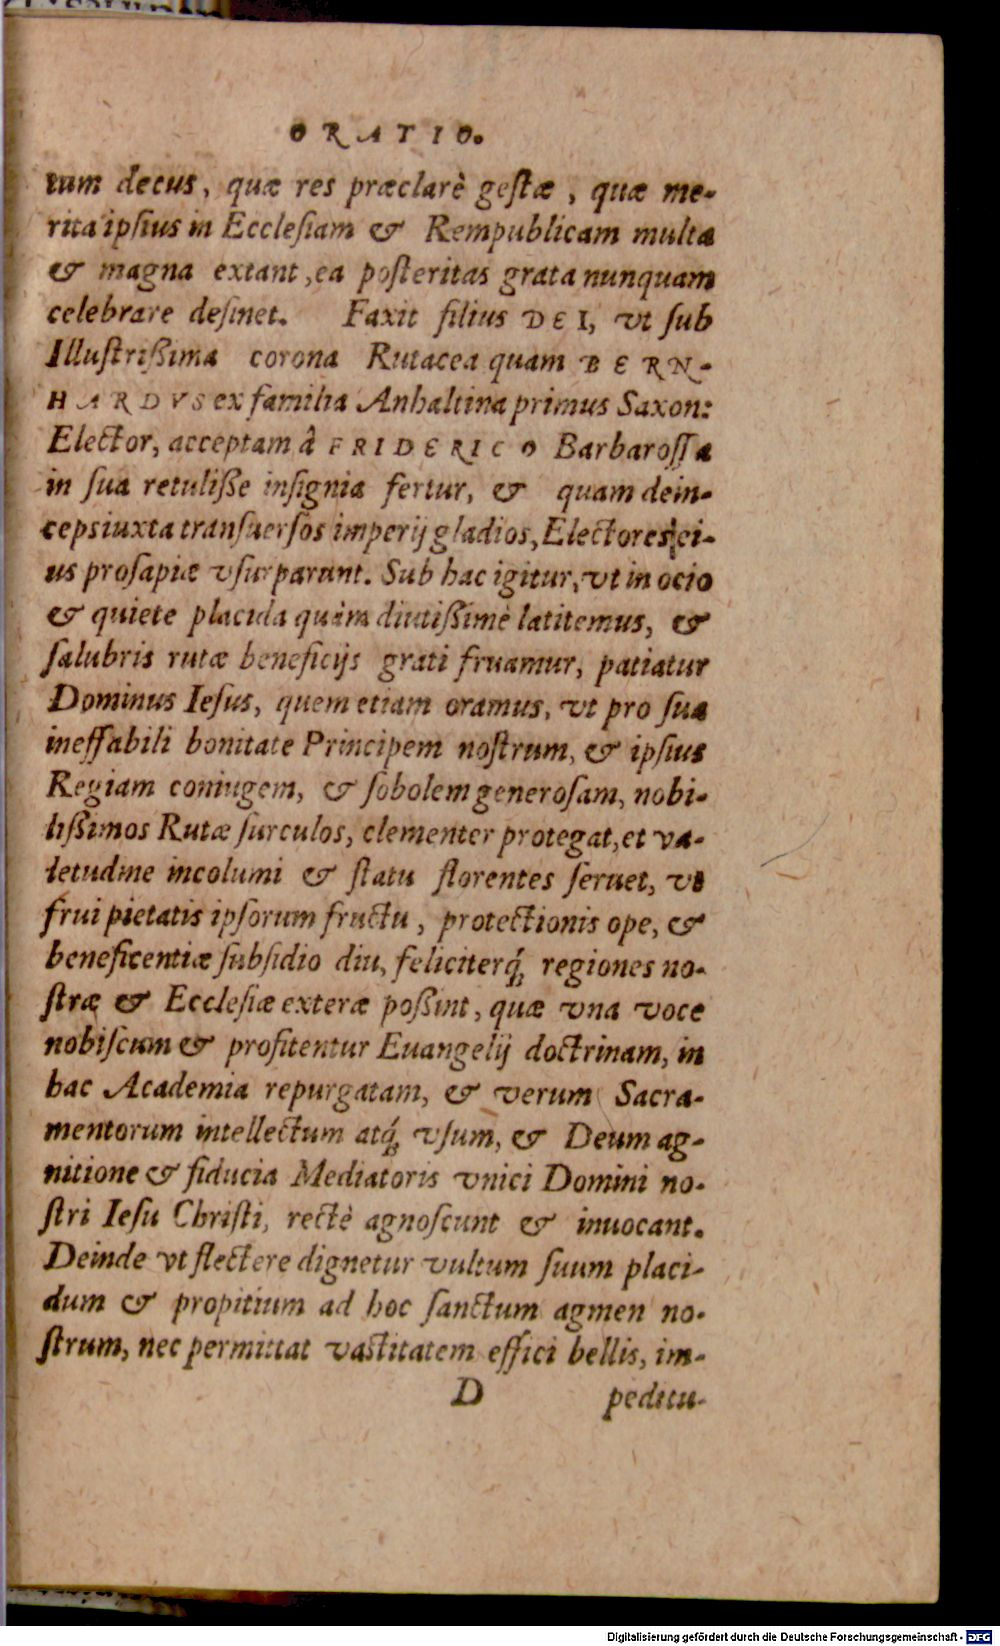 ORATIO.
tum decus, quæ res præclarè gestæ, quæ me-
rita ipsius in Ecclesiam & Rempublicam multa
& magna extant, ea posteritas grata nunquam
celebrare desinet. Faxit filius DEI, vt sub
Illustrißima corona Rutacea quam BERN-
HARDVS ex familia Anhaltina primus Saxon:
Elector, acceptam â FRIDERICO Barbarossa
in sua retuliße insignia fertur, & quam dein-
ceps iuxta transuersos imperij gladios, Electores ei-
us prosapiæ vsurparunt. Sub hac igitur, vt in ocio
& quiete placida quàm diutißimè latitemus, &
salubris rutæ beneficijs grati fruamur, patiatur
Dominus Iesus, quem etiam oramus, vt pro sua
ineffabili bonitate Principem nostrum, & ipsius
Regiam coniugem, & sobolem generosam, nobi-
lißimos Rutæ surculos, clementer protegat, et va-
letudine incolumi & statu florentes seruet, vt
frui pietatis ipsorum fructu, protectionis ope, &
beneficentiæ subsidio diu, feliciterq́; regiones no-
stræ & Ecclesiæ exteræ poßint, quæ vna voce
nobiscum & profitentur Euangelij doctrinam, in
hac Academia repurgatam, & verum Sacra-
mentorum intellectum atq́; vsum, & Deum ag-
nitione & fiducia Mediatoris vnici Domini no-
stri Iesu Christi, rectè agnoscunt & inuocant.
Deinde vt flectere dignetur vultum suum placi-
dum & propitium ad hoc sanctum agmen no-
strum, nec permittat vastitatem effici bellis, im-
D peditu-
Digitalisierung gefördert durch die Deutsche Forschungsgemeinschaft - DFG